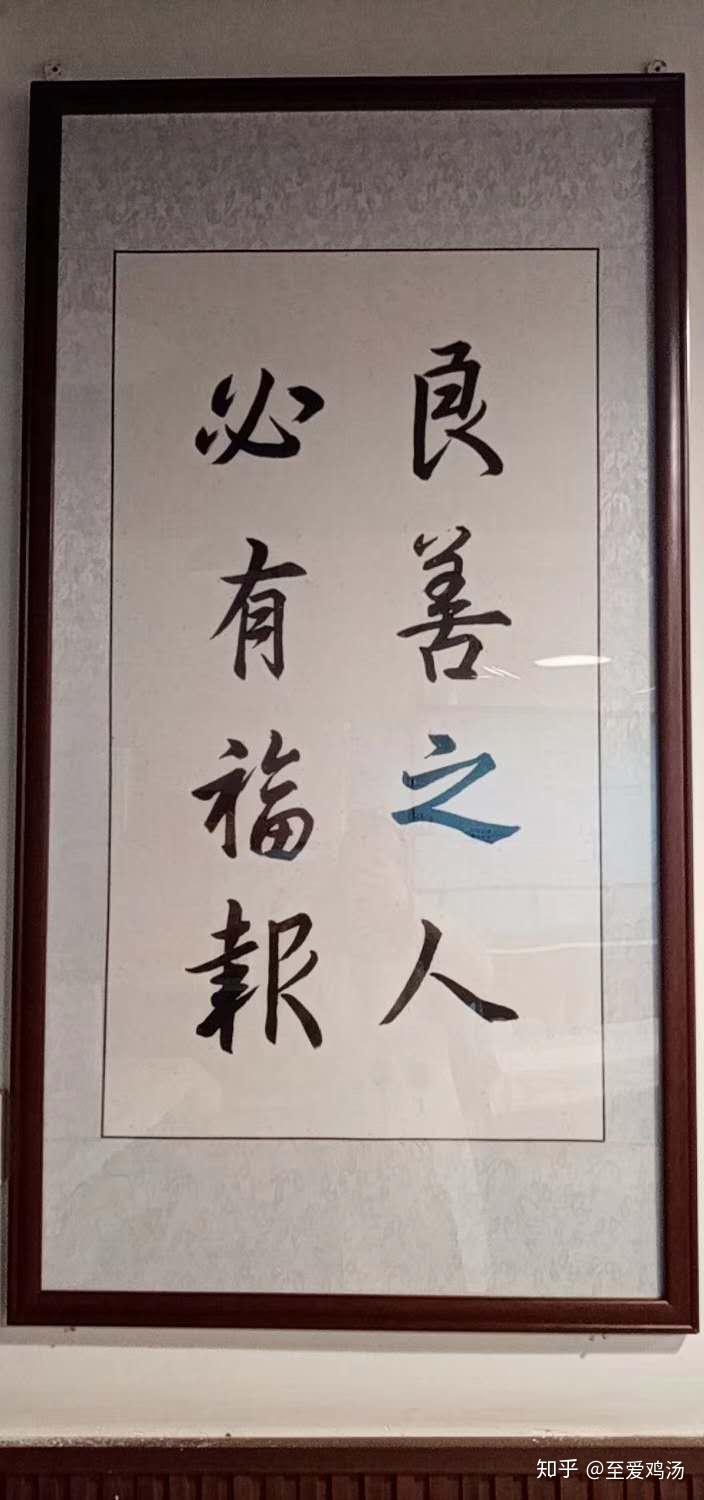 良善之人
必有福報
知乎 @至爱鸡汤